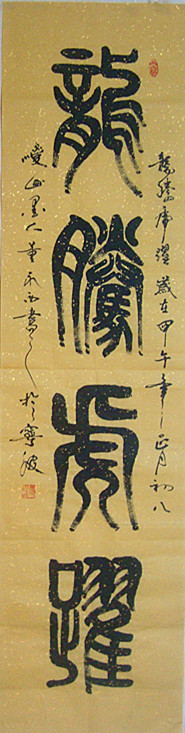 龍騰虎躍
龍騰虎躍 歲在甲午年正月初八
山墨人董 書於寧波